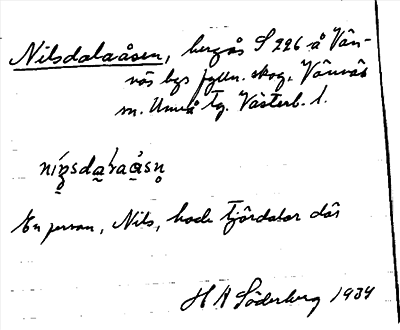 Nilsdalaåsen, bergås S 226 å Vän-
näs bys fjälln. skog. Vännäs
sn. Umeå tg. Västerb. l.
En person, Nils, hade tjärdalar där
H A Söderberg 1934